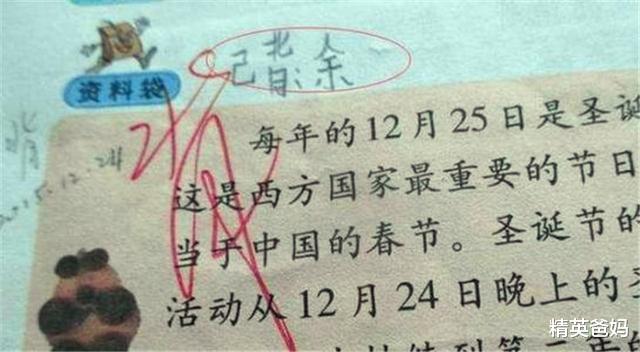 已背:余
资料袋
背
2015.12.24
每年的12月25日是圣诞
这是西方国家最重要的节日
当于中国的春节。圣诞节的
活动从12月24日晚上的
精英爸妈